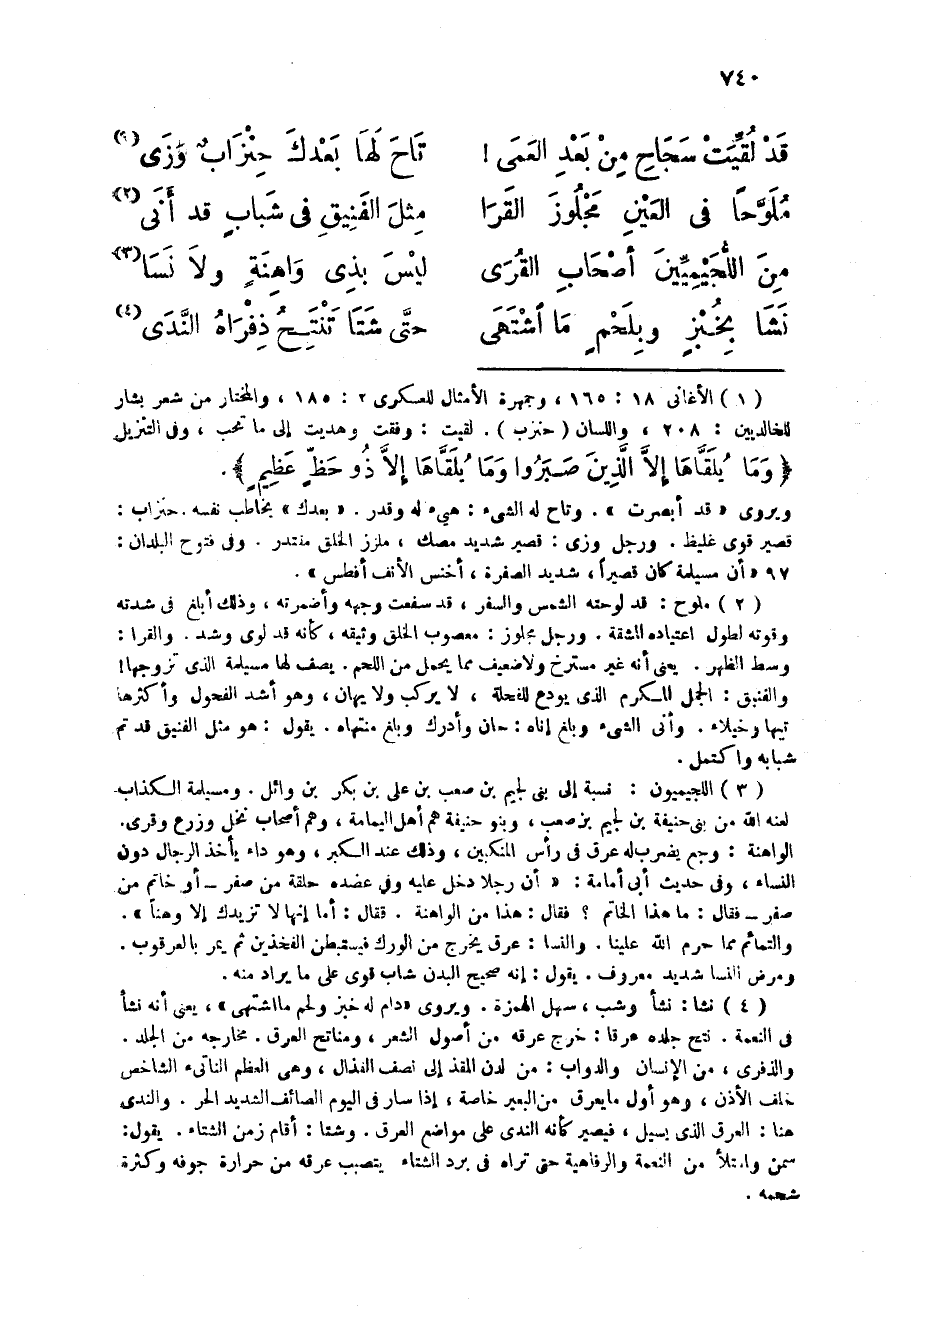 ٧٤٠
قَدْ لُقِّيَتْ سَجَاحِ مِنْ بَعْدِ العَمَى ! تَاحَ لَهَا بَعْدكَ حِنْزَابٌ وَزَى (١)
مُلَوَّحًا فى العَيْنِ مَجْلُوزَ القَرَا مِثلَ الفَنِيقِ فى شَبابٍ قد أَنَى (٢)
مِنَ اللُّجَيْمِيِّينَ أصْحَابِ القُرَى ليْسَ بذِى وَاهِنَةٍ ولاَ نَسَا (٣)
نَشَا بِخُبْزٍ وبِلَحْمٍ مَا أشْتَهَى حتَّى شَتَا تَنْتَحُ ذِفْرَاهُ النَّدَى (٤)
( ١ ) الأغانى ١٨ : ١٦٥ ، وجمهرة الأمثال للعسكرى ٢ : ١٨٥ ، والمختار من شعر بشار
للخالديين : ٢٠٨ ، واللسان ( حنزب ) . لقيت : وفقت وهديت إلى ما تحب ، وفى التنزيل
﴿ وَمَا يُلَقَّاهَا إلاَّ الَّذِينَ صَبَرُوا وَمَا يُلَقَّاهَا إلاَّ ذُو حَظٍّ عَظِيمٍ ﴾ .
ويروى « قد أبصرت » . وتاح له الشىء : هيىء له وقدر . « بعدك » يخاطب نفسه . حنزاب :
قصير قوى غليظ . ورجل وزى : قصير شديد مصك ، ملزز الخلق مقتدر . وفى فتوح البلدان :
٩٧ « أن مسيلمة كان قصيراً ، شديد الصفرة ، أخنس الأنف أفطس » .
( ٢ ) ملوح : قد لوحته الشمس والسفر ، قد سفعت وجهه وأضمرته ، وذلك أبلغ فى شدته
وقوته لطول اعتياده المشقة . ورجل مجلوز : معصوب الخلق وثيقه ، كأنه قد لوى وشد . والقرا :
وسط الظهر . يعنى أنه غير مسترخ ولا ضعيف مما يحمل من اللحم . يصف لها مسيلمة الذى تزوجها !
والفنيق : الجمل المكرم الذى يودع للفحلة ، لا يركب ولا يهان ، وهو أشد الفحول وأكثرها
تيها وخيلاء . وأنى الشىء وبلغ إناه : حان وأدرك وبلغ منتهاه . يقول : هو مثل الفنيق قد تم
شبابه واكتمل .
( ٣ ) اللجيميون : نسبة إلى بنى لجيم بن صعب بن على بن بكر بن وائل . ومسيلمة الكذاب
لعنه الله من بنى حنيفة بن لجيم بن صعب ، وبنو حنيفة هم أهل اليمامة ، وهم أصحاب نخل وزرع وقرى .
الواهنة : وجع يضرب له عرق فى رأس المنكبين ، وذلك عند الكبر ، وهو داء يأخذ الرجال دون
النساء ، وفى حديث أبى أمامة : « أن رجلا دخل عليه وفى عضده حلقة من صفر – أو خاتم من
صفر – فقال : ما هذا الخاتم ؟ فقال : هذا من الواهنة . فقال : أما إنها لا تزيدك إلا وهناً » .
والتمائم مما حرم الله علينا . والنسا : عرق يخرج من الورك فيستبطن الفخذين ثم يمر بالعرقوب .
ومرض النسا شديد معروف . يقول : إنه صحيح البدن شاب قوى على ما يراد منه .
( ٤ ) نشا : نشأ وشب ، سهل الهمزة . ويروى « دام له خبز ولحم ما اشتهى » ، يعنى أنه نشأ
فى النعمة . نتح جلده عرقا : خرج عرقه من أصول الشعر ، ومناتح العرق . مخارجه من الجلد .
والذفرى ، من الإنسان والدواب : من لدن المقذ إلى نصف القذال ، وهى العظم الناتىء الشاخص
خلف الأذن ، وهو أول ما يعرق من البعير خاصة ، إذا سار فى اليوم الصائف الشديد الحر . والندى
هنا : العرق الذى يسيل ، فيصير كأنه الندى على مواضع العرق . وشتا : أقام زمن الشتاء . يقول :
سمن وامتلأ من النعمة والرفاهية حتى تراه فى برد الشتاء يتصبب عرقه من حرارة جوفه وكثرة
شحمه .